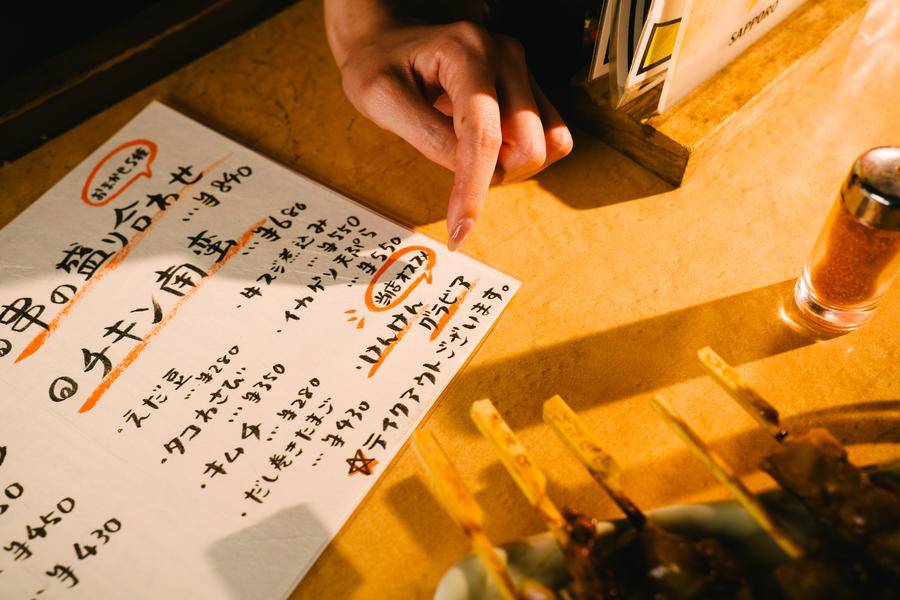 SAPPORO
おまかせ5種
串の盛り合わせ
…¥840
◎チキン南蛮
…¥680
・牛スジ煮込み
…¥550
・イカゲソ天ぷら
…¥550
当店オススメ
・けんけん
グラピア
・えだ豆…¥280
・タコわさび
…¥350
・キムチ…¥280
・だし巻きたまご
…¥430
☆テイクアウトございます。
¥450
¥430